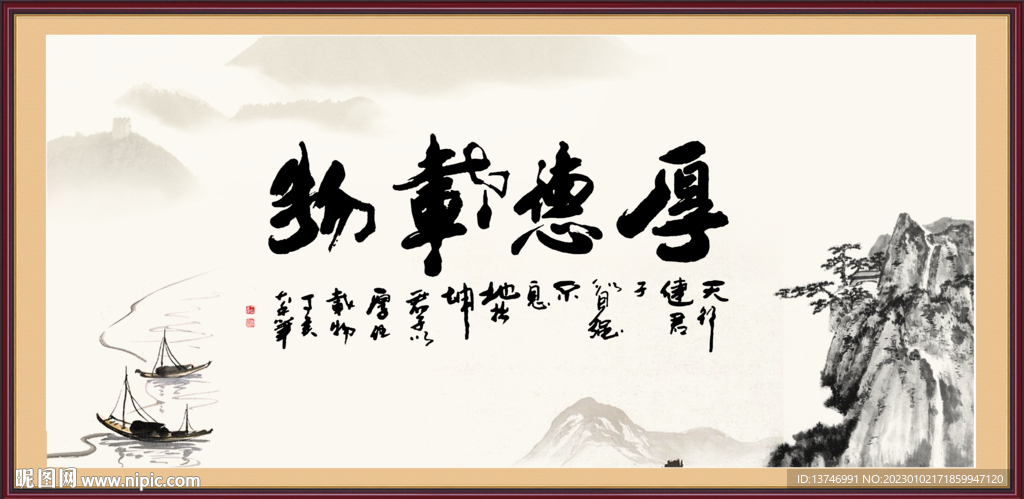 厚德載物
天行
健君
子
以自強
不
息
地势
坤
君子以
厚德
載物
丁亥
昵图网 www.nipic.com
ID:13746991 NO:20230102171859947120